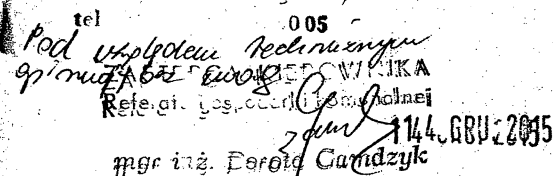 tel 005
Pod względem technicznym
opiniuję bez uwag
ZASTĘPCA KIEROWNIKA
Referatu Gospodarki Komunalnej
GRU. 2015
mgr inż. Dorota Gamdzyk